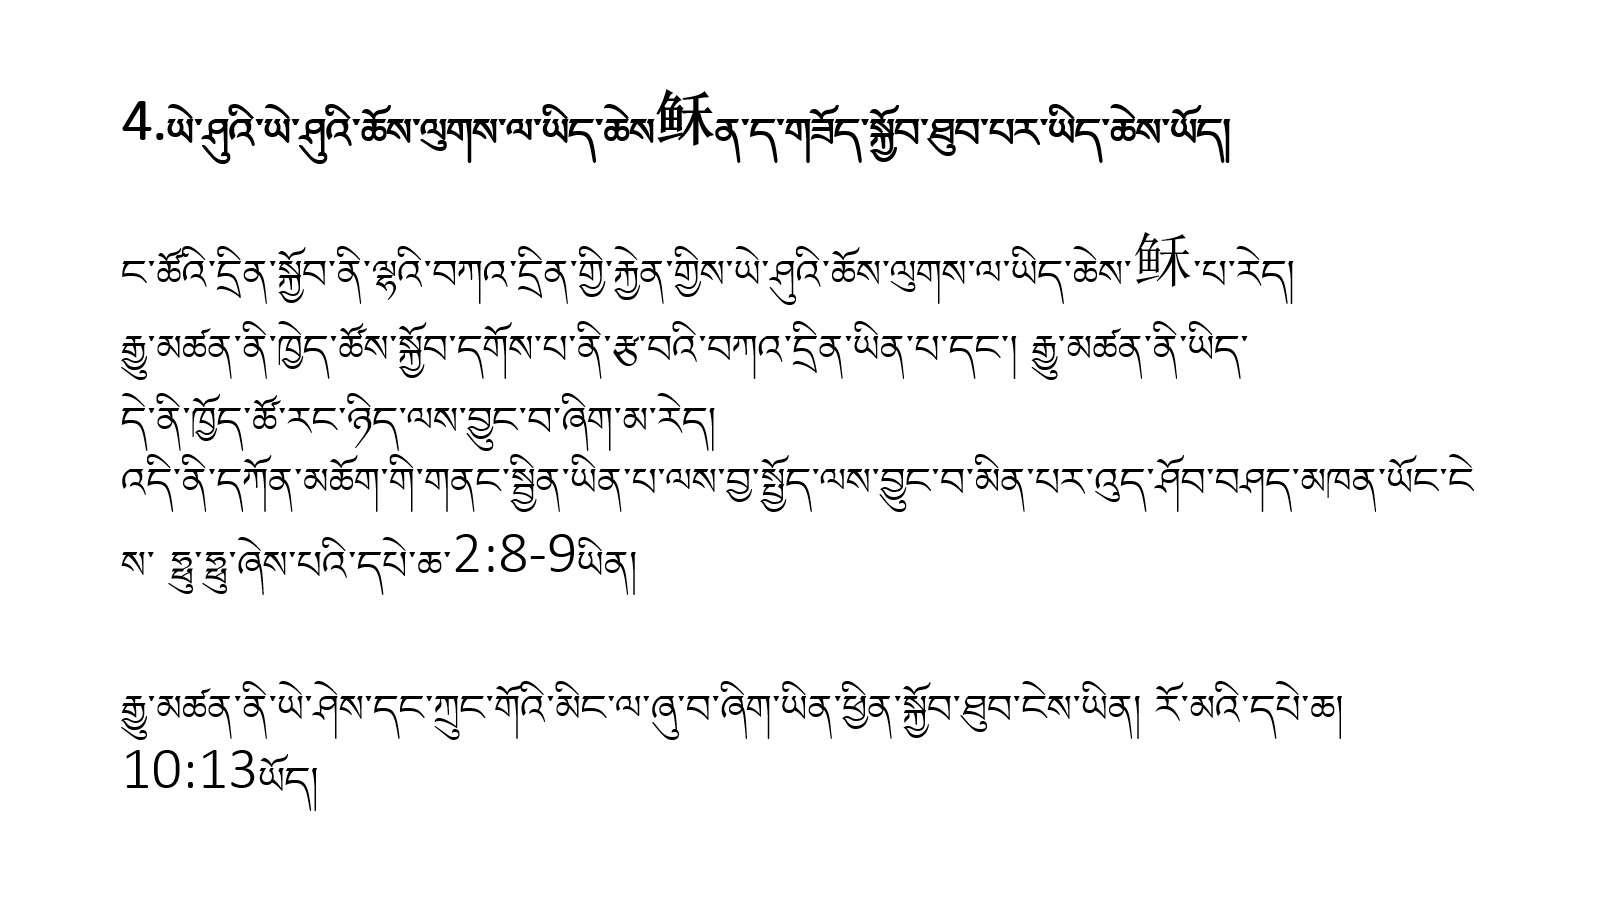 4.ཡེ་ཤུའི་ཡེ་ཤུའི་ཆོས་ལུགས་ལ་ཡིད་ཆེས稣ན་ད་གཟོད་སྐྱོབ་ཐུབ་པར་ཡིད་ཆེས་ཡོད།
ང་ཚོའི་དྲིན་སྐྱོབ་ནི་ལྷའི་བཀའ་དྲིན་གྱི་རྐྱེན་གྱིས་ཡེ་ཤུའི་ཆོས་ལུགས་ལ་ཡིད་ཆེས་稣་པ་རེད།
རྒྱུ་མཚན་ནི་ཁྱེད་ཚོས་སྐྱོབ་དགོས་པ་ནི་རྩ་བའི་བཀའ་དྲིན་ཡིན་པ་དང་། རྒྱུ་མཚན་ནི་ཡིད་
དེ་ནི་ཁྱོད་ཚོ་རང་ཉིད་ལས་བྱུང་བ་ཞིག་མ་རེད།
འདི་ནི་དཀོན་མཆོག་གི་གནང་སྦྱིན་ཡིན་པ་ལས་བྱ་སྤྱོད་ལས་བྱུང་བ་མིན་པར་འུད་ཤོབ་བཤད་མཁན་ཡོང་ངེ
ས་ ཧྥུ་ཧྥུ་ཞེས་པའི་དཔེ་ཆ་2:8-9ཡིན།
རྒྱུ་མཚན་ནི་ཡེ་ཤེས་དང་ཀྲུང་གོའི་མིང་ལ་ཞུ་བ་ཞིག་ཡིན་ཕྱིན་སྐྱོབ་ཐུབ་ངེས་ཡིན། རོ་མའི་དཔེ་ཆ།
10:13ཡོད།